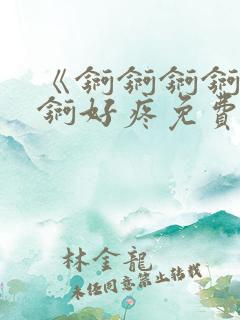 《锕锕锕锕
锕好疼免費
林金龍
未经同意禁止转载